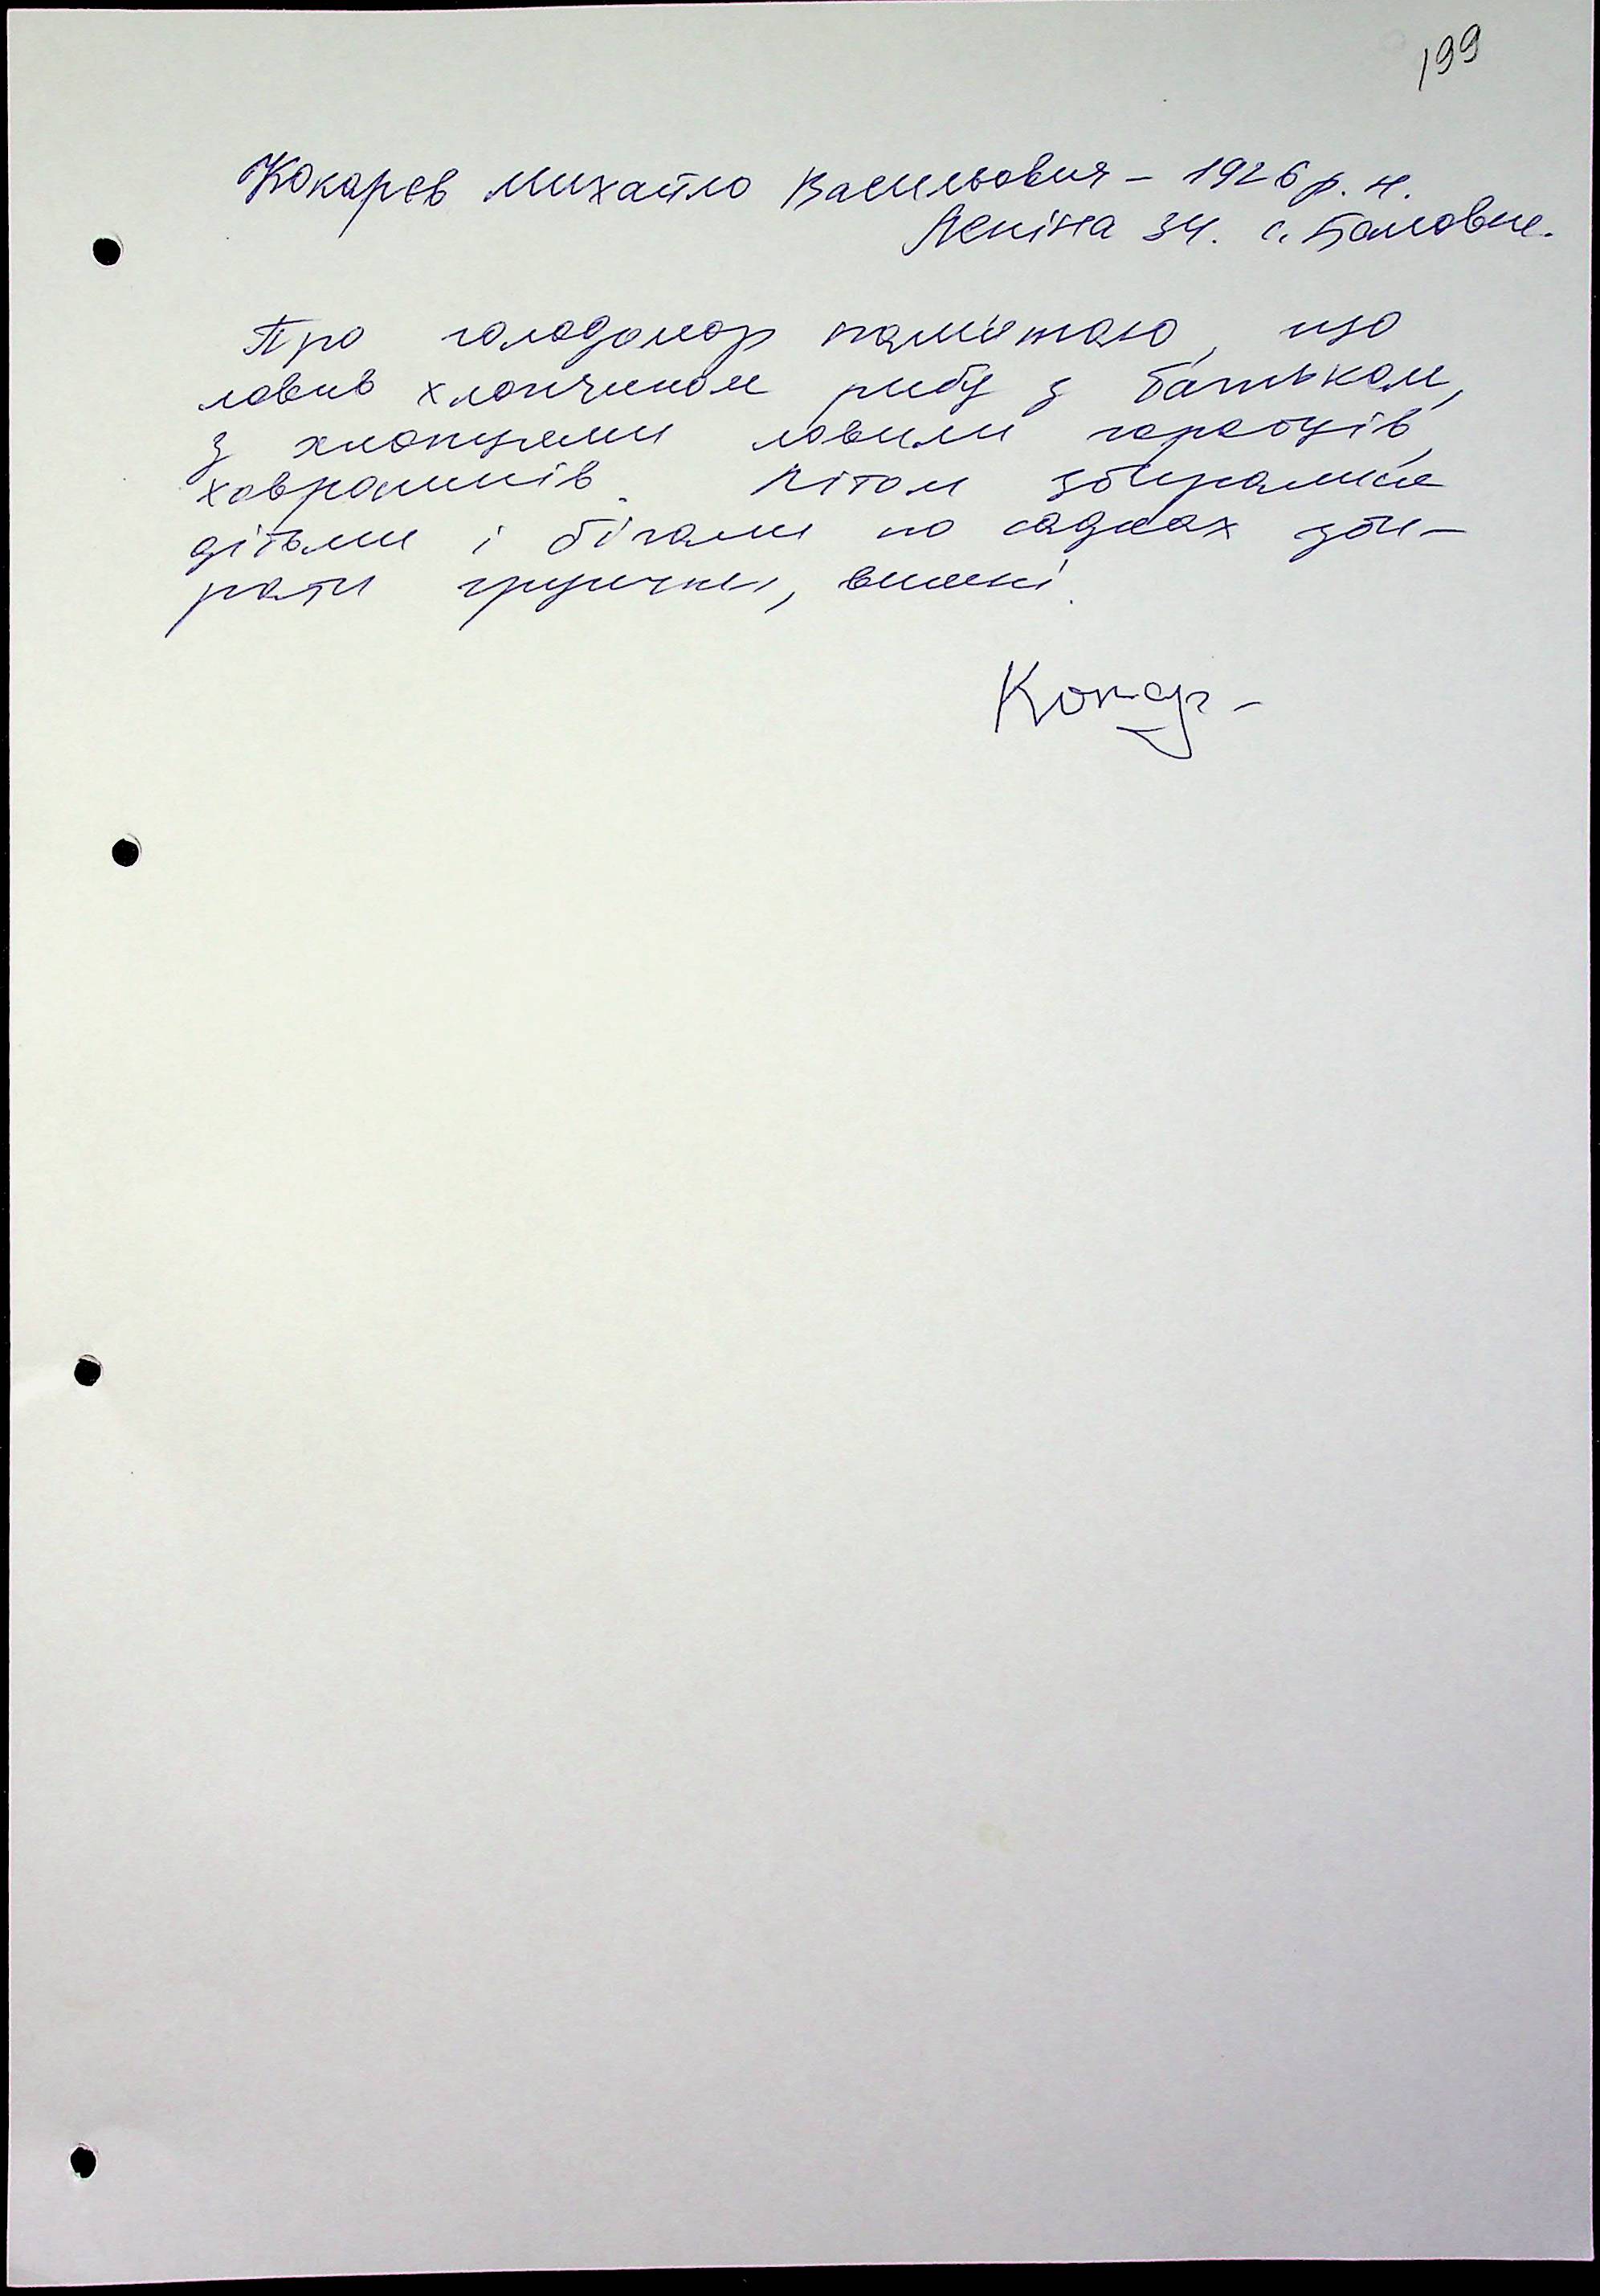 199
Кокарєв Михайло Васильович - 1926 р. н.
Леніна 34. с. Баловне.
Про голодомор пам'ятаю, що
ловив хлопчиком рибу з батьком,
з хлопцями ловили горобців,
ховрашків. Літом збиралися
дітьми і бігали по садках зби-
рати грушки, вишні.
Кокар-